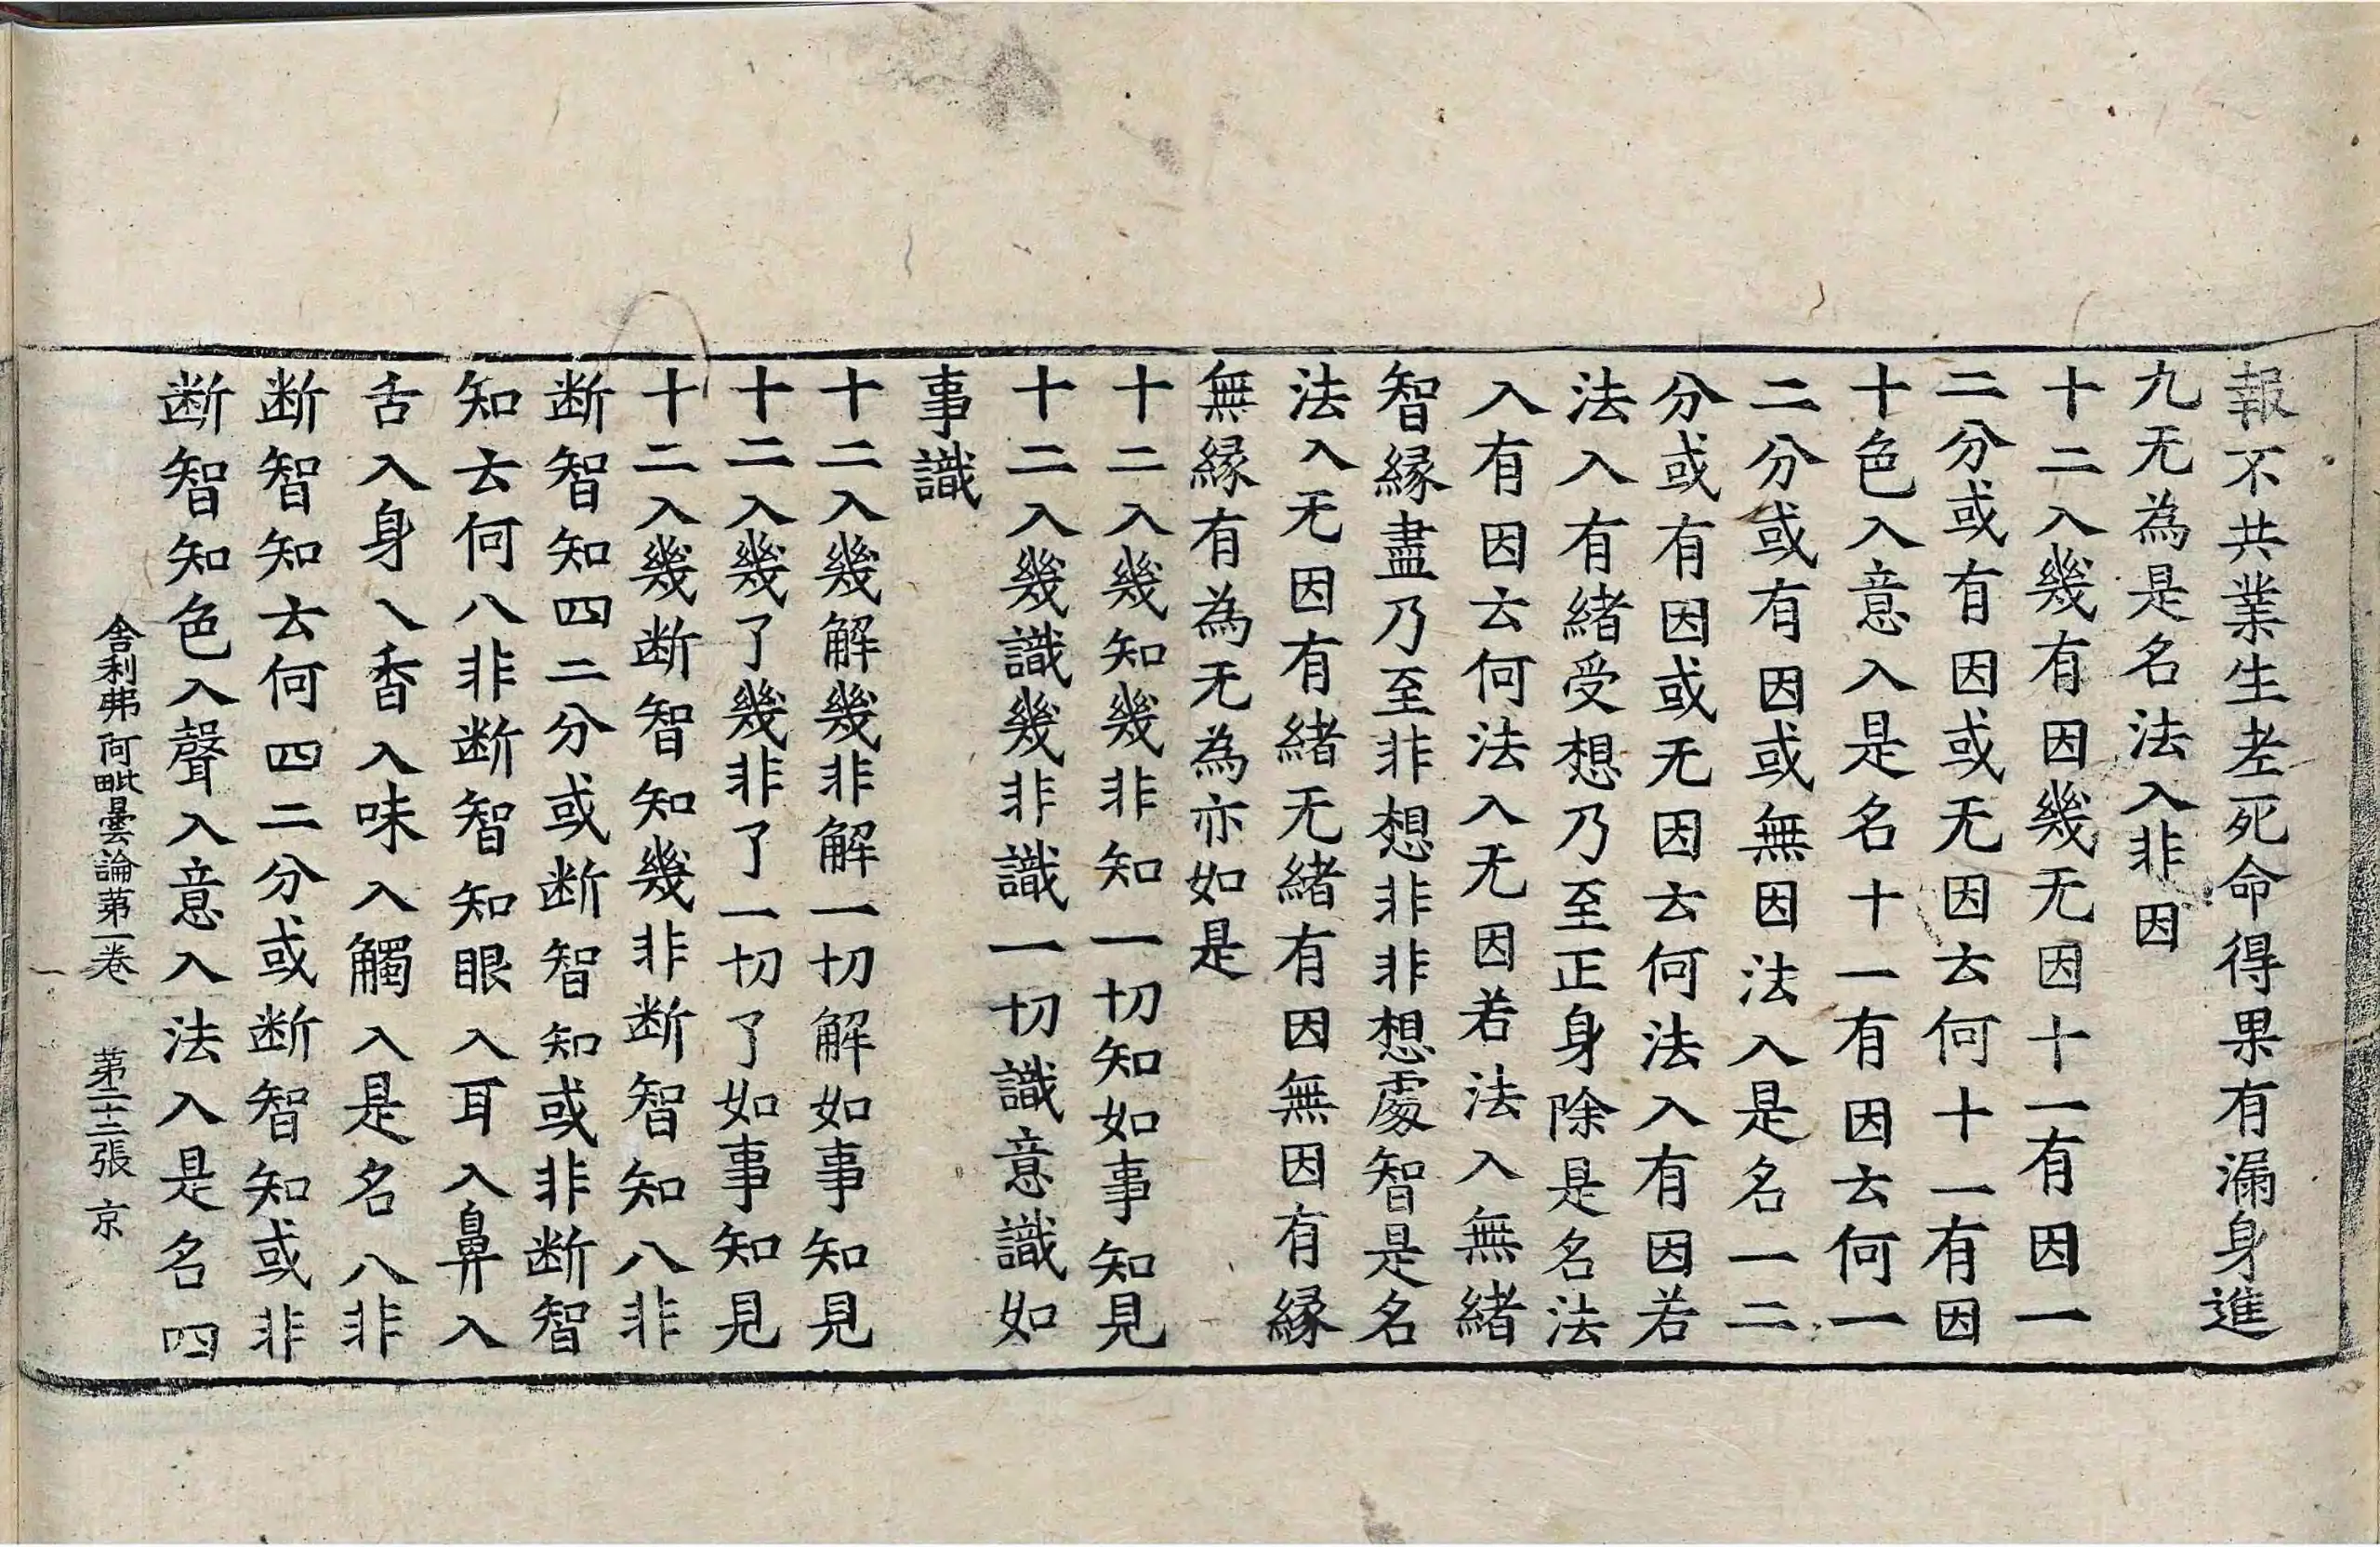 報不共業生老死命得果有漏身進
九无為是名法入非因
十二入幾有因幾无因十一有因一
二分或有因或无因云何十一有因
十色入意入是名十一有因云何一
二分或有因或無因法入是名一二
分或有因或无因云何法入有因若
法入有緒受想乃至正身除是名法
入有因云何法入无因若法入無緒
智緣盡乃至非想非非想處智是名
法入无因有緒无緒有因無因有緣
無緣有為无為亦如是
十二入幾知幾非知一切知如事知見
十二入幾識幾非識一切識意識如
事識
十二入幾解幾非解一切解如事知見
十二入幾了幾非了一切了如事知見
十二入幾断智知幾非断智知八非
断智知四二分或断智知或非断智
知云何八非断智知眼入耳入鼻入
舌入身入香入味入觸入是名八非
断智知云何四二分或断智知或非
断智知色入聲入意入法入是名四
舎利弗阿毗曇論苐一卷　苐二十二張　京